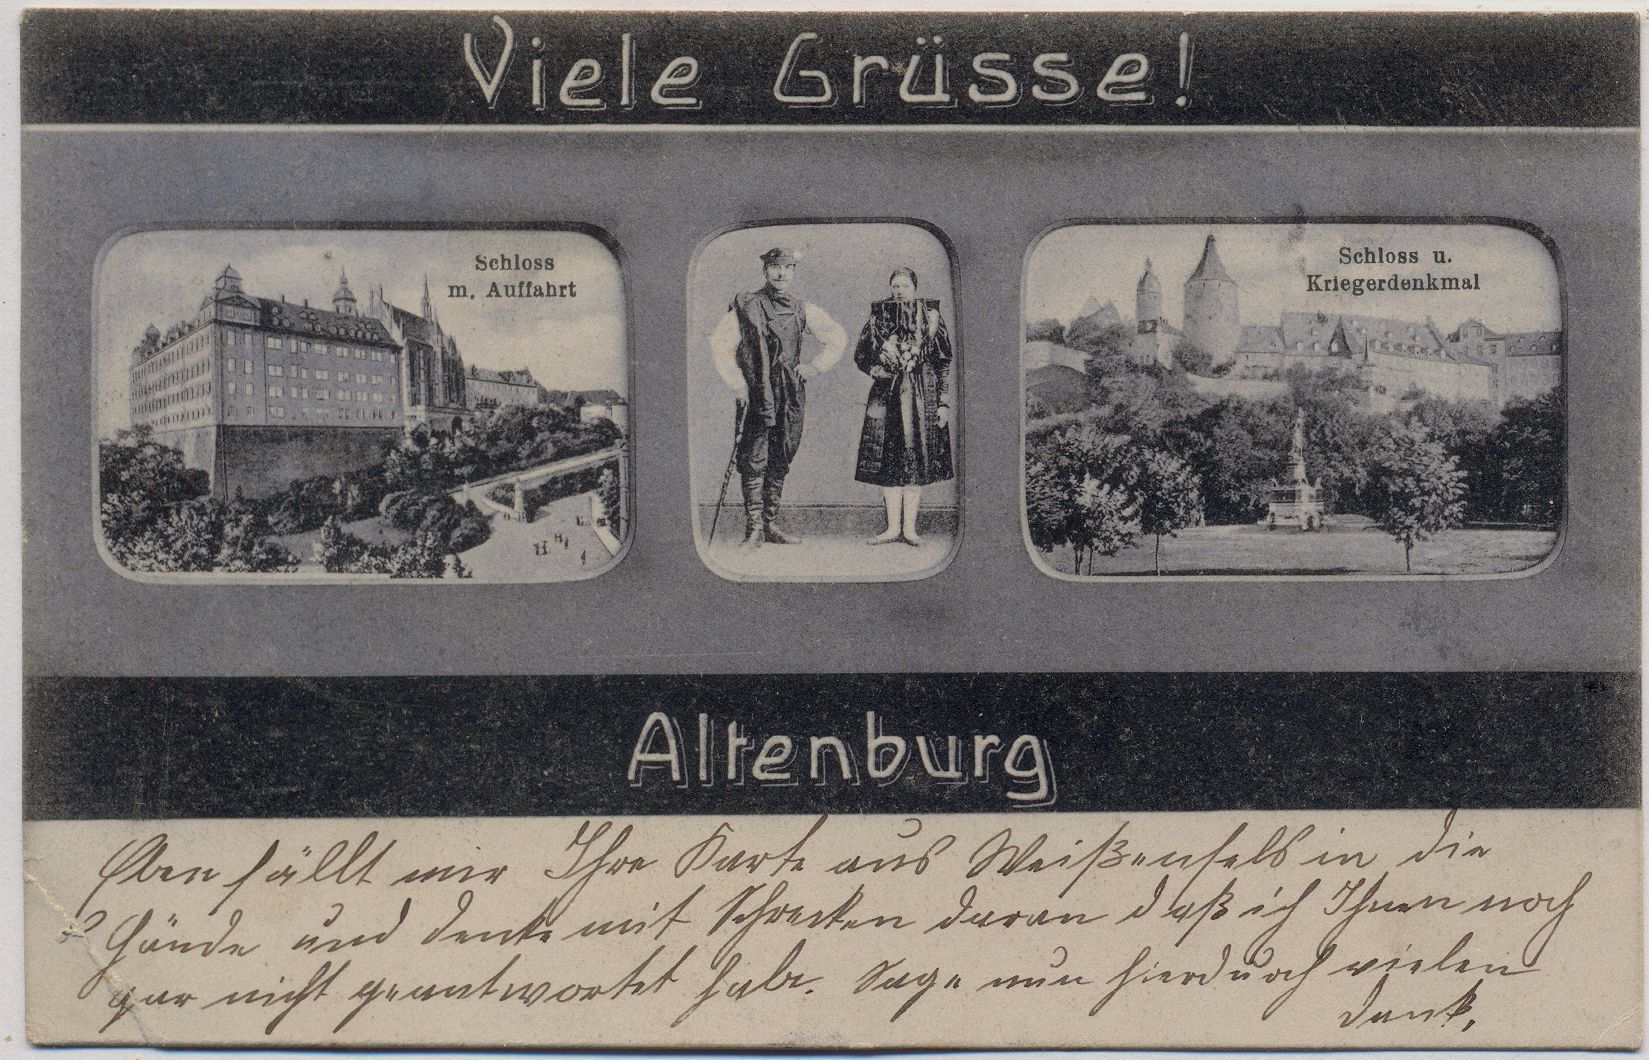 Viele Grüsse!
Schloss
m. Auffahrt
Schloss u.
Kriegerdenkmal
Altenburg
Eben fällt mir Ihre Karte aus Weißenfels in die
Hände und denke mit Schrecken daran daß ich Ihnen noch
gar nicht geantwortet habe. Sage nun hierdurch vielen
Dank.